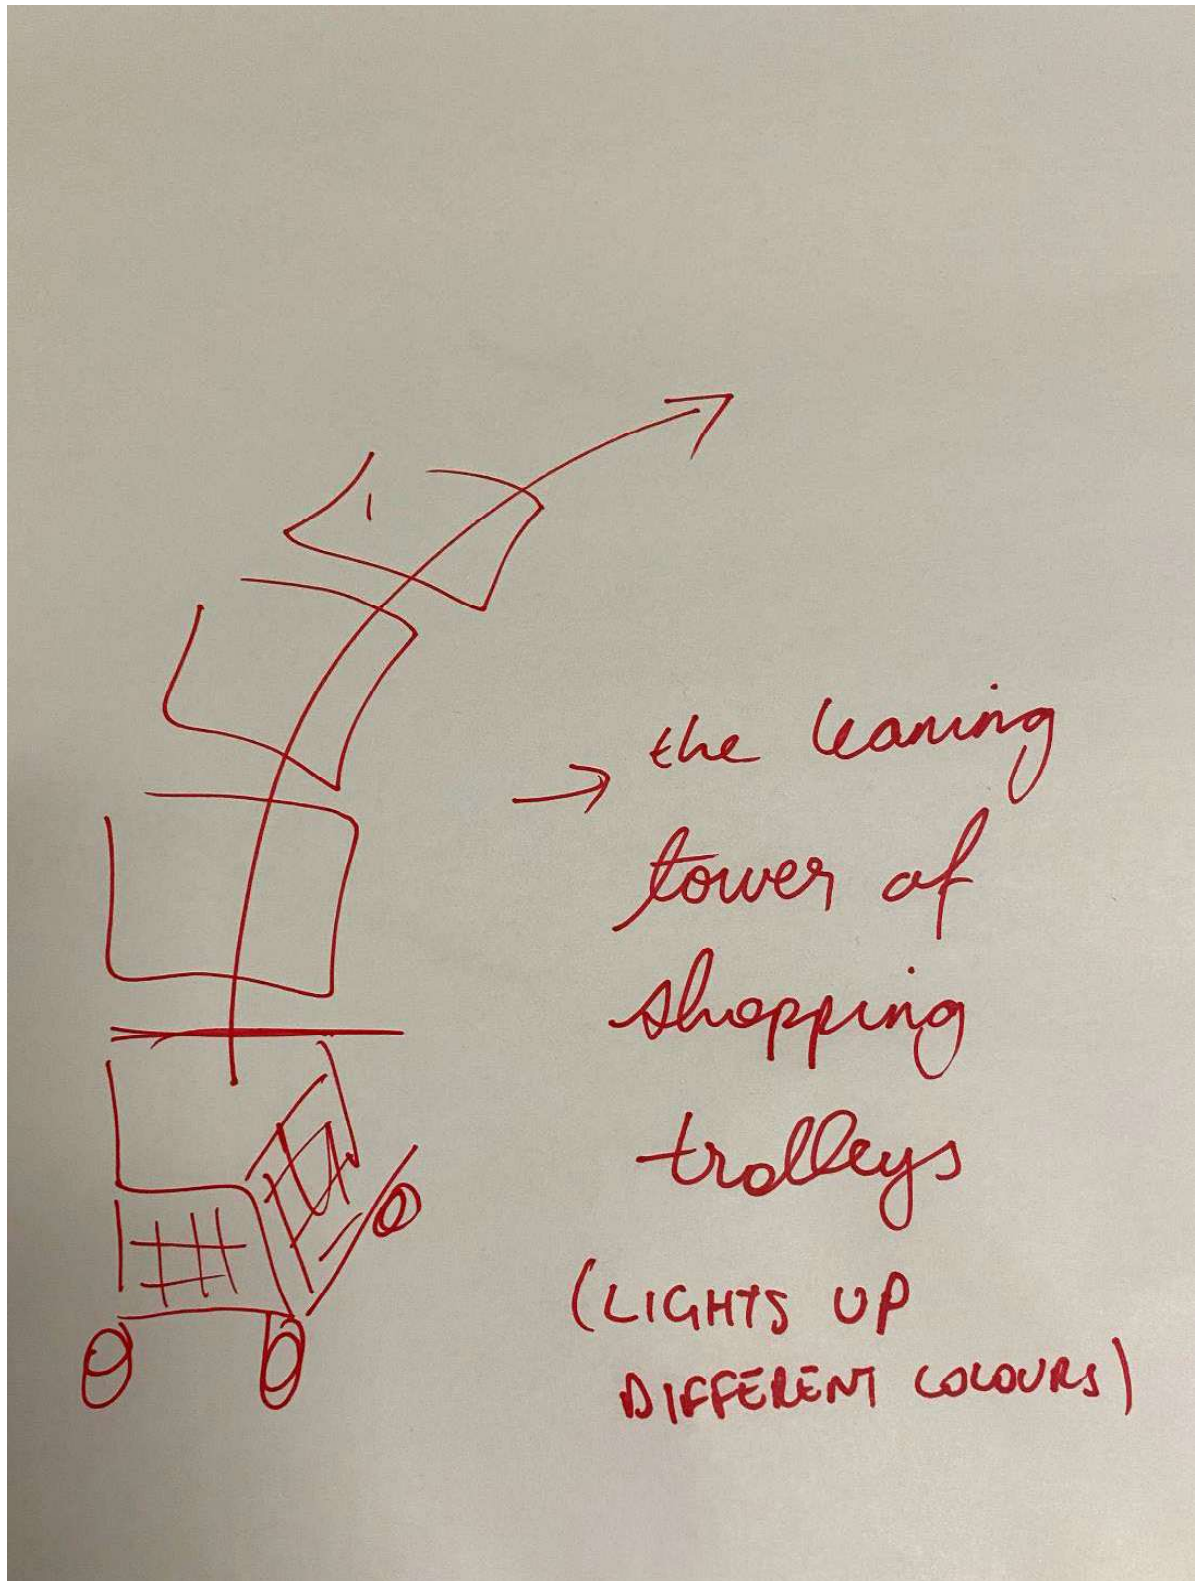 → the leaning
tower of
shopping
trolleys
(LIGHTS UP
DIFFERENT COLOURS)